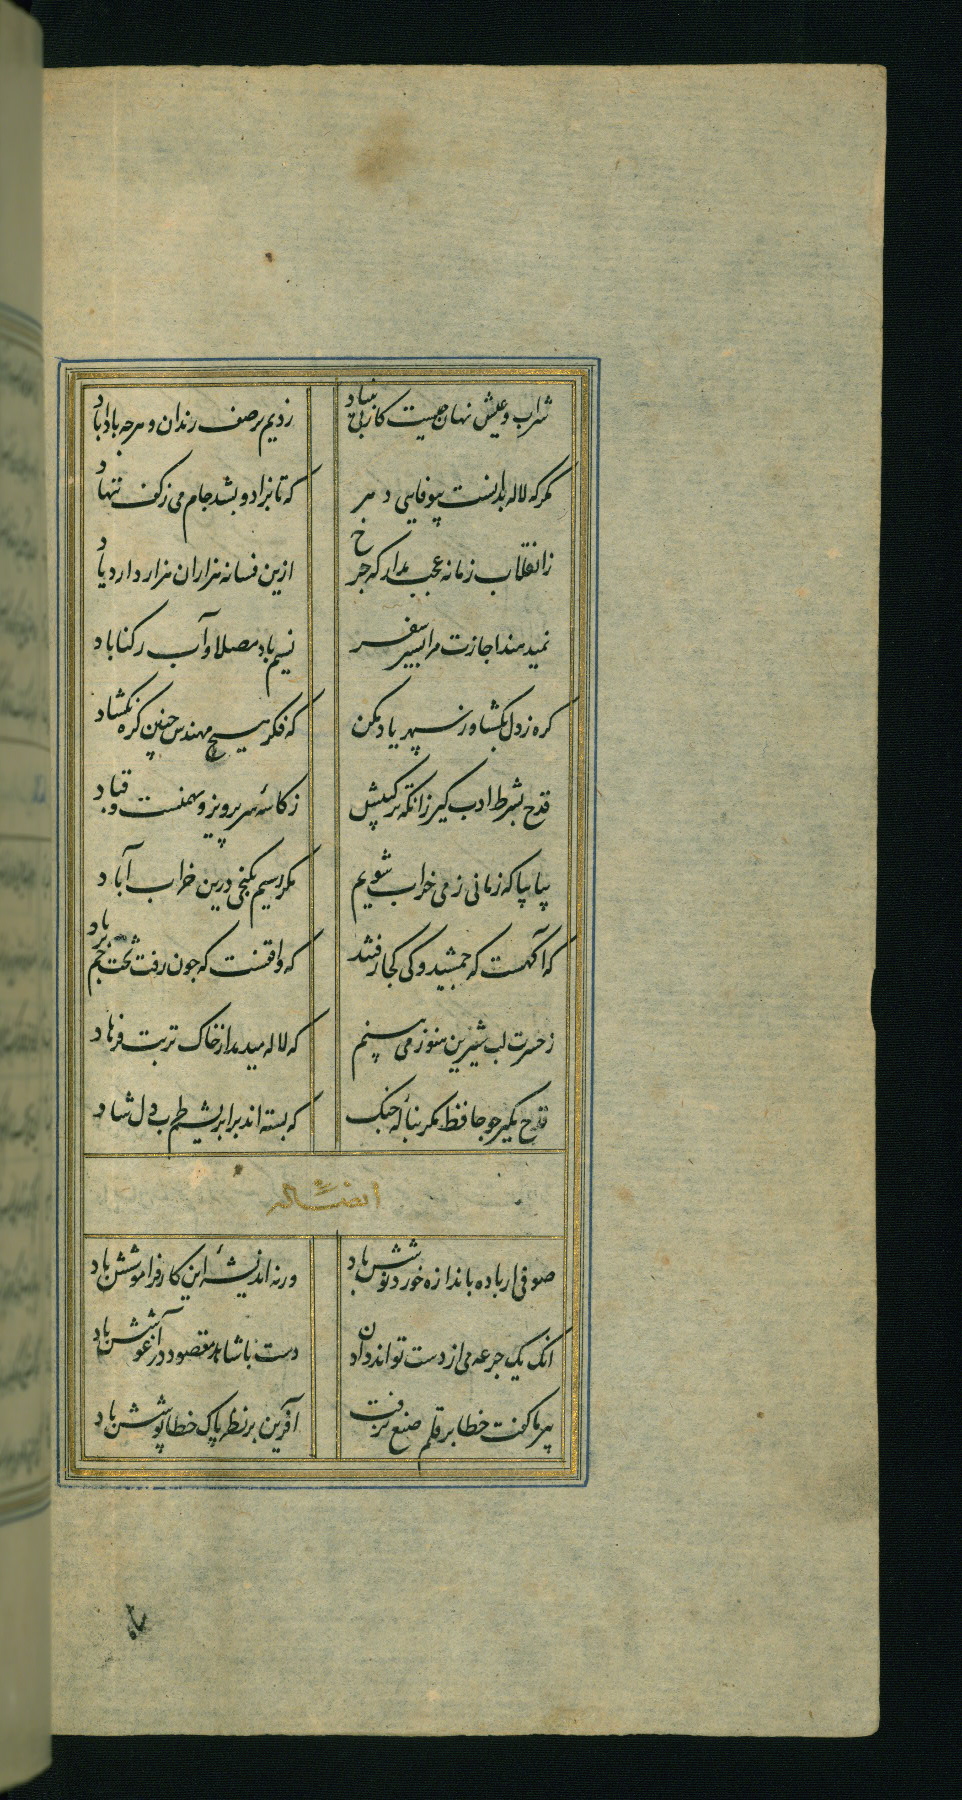 شراب و عیش نهان چیست کار بی بنیاد زدیم بر صف رندان و هرچه بادا باد
مکر که لاله بدانست بیوفایی دهر که تا بزاد و بشد جام می ز کف ننهاد
ز انقلاب زمانه عجب مدار که چرخ ازین فسانه هزاران هزار دارد یاد
نمیدهند اجازت مرا بسیر سفر نسیم باد مصلا و آب رکناباد
کره ز دل بکشا وز سپهر یاد مکن که فکر هیچ مهندس چنین کره نکشاد
قدح بشرط ادب کیر زانکه ترکیبش ز کاسه سر پرویز و بهمنست و قباد
بیا بیا که زمانی ز می خراب شویم مکر رسیم بکنجی درین خراب آباد
که آکهست که جمشید و کی کجا رفتند که واقفست که چون رفت تخت جم بر باد
ز حسرت لب شیرین هنوز می بینم که لاله میدمد از خاک تربت فرهاد
قدح مکیر چو حافظ مکر بناله چنک که بسته اند بر ابریشم طرب دل شاد
صوفی ار باده باندازه خورد نوشش باد ورنه اندیشه این کار فراموشش باد
انک یک جرعه می از دست تواند دادن دست با شاهد مقصود در آغوشش باد
پیر ما کفت خطا بر قلم صنع نرفت آفرین بر نظر پاک خطا پوشش باد